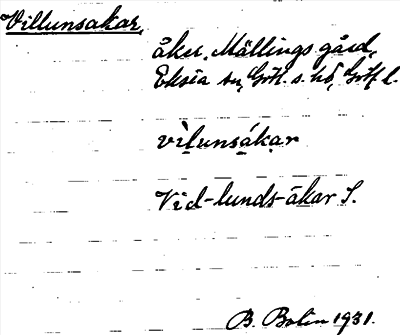 Villunsakar,
åker, Mällings gård,
Eksta sn, Gotl. s. hd, Gotl l.
vìlunsákar
Vid-lunds-åkar S.
B. Bolin 1931.